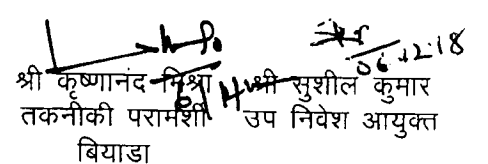 06.12.18
श्री कृष्णानंद मिश्रा श्री सुशील कुमार
तकनीकी परामर्शी उप निवेश आयुक्त
बियाडा